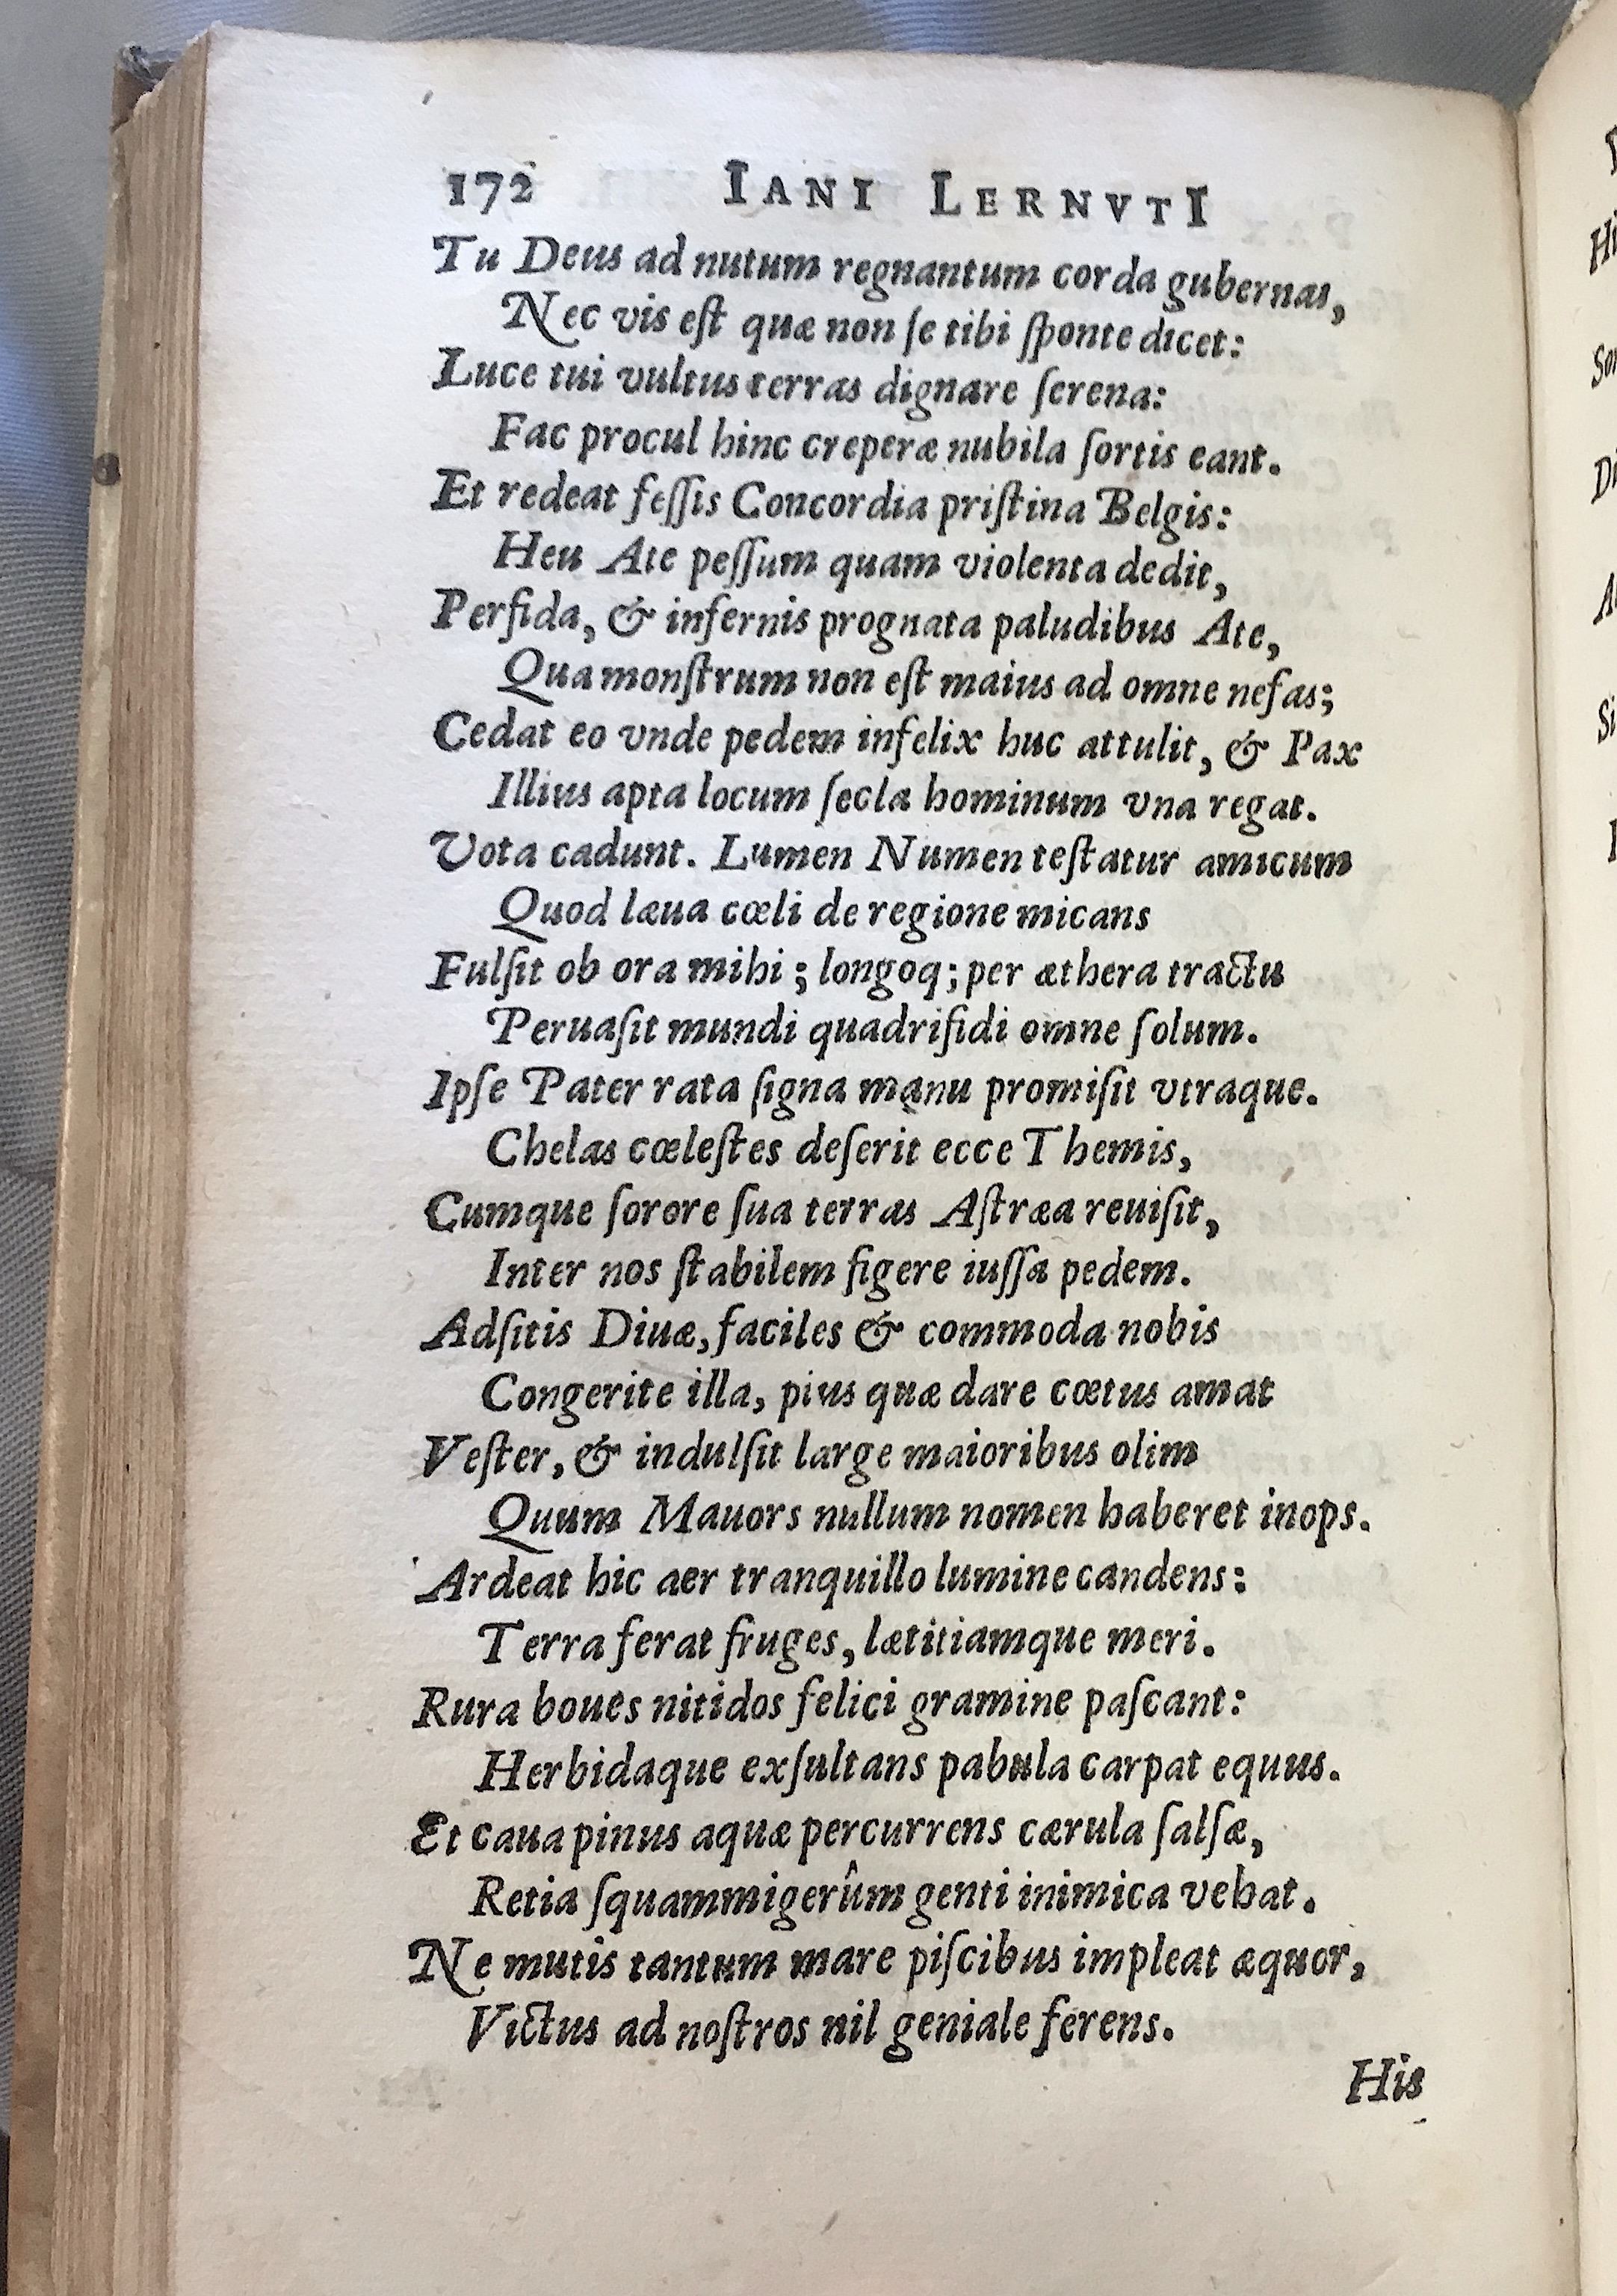 172 IANI LERNVTI
Tu Deus ad nutum regnantum corda gubernas,
Nec vis est quæ non se tibi sponte dicet:
Luce tui vultus terras dignare serena:
Fac procul hinc creperæ nubila sortis eant.
Et redeat fessis Concordia pristina Belgis:
Heu Ate pessum quam violenta dedit,
Perfida, & infernis prognata paludibus Ate,
Qua monstrum non est maius ad omne nefas;
Cedat eo vnde pedem infelix huc attulit, & Pax
Illius apta locum secla hominum vna regat.
Vota cadunt. Lumen Numen testatur amicum
Quod læua cœli de regione micans
Fulsit ob ora mihi; longoq; per æthera tractu
Peruasit mundi quadrifidi omne solum.
Ipse Pater rata signa manu promisit vtraque.
Chelas cœlestes deserit ecce Themis,
Cumque sorore sua terras Astræa reuisit,
Inter nos stabilem figere iussa pedem.
Adsitis Diuæ, faciles & commoda nobis
Congerite illa, pius quæ dare cœtus amat
Vester, & indulsit large maioribus olim
Quum Mauors nullum nomen haberet inops.
Ardeat hic aer tranquillo lumine candens:
Terra ferat fruges, lætitiamque meri.
Rura boues nitidos felici gramine pascant:
Herbidaque exsultans pabula carpat equus.
Et caua pinus aquæ percurrens cærula salsæ,
Retia squammigerûm genti inimica vehat.
Ne mutis tantum mare piscibus impleat æquor,
Victus ad nostros nil geniale ferens.
His